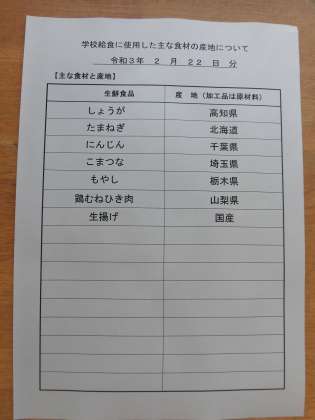 学校給食に使用した主な食材の産地について
令和3年 2 月 22 日 分
【主な食材と産地】
生鮮食品 産 地（加工品は原材料）
しょうが 高知県
たまねぎ 北海道
にんじん 千葉県
こまつな 埼玉県
もやし 栃木県
鶏むねひき肉 山梨県
生揚げ 国産